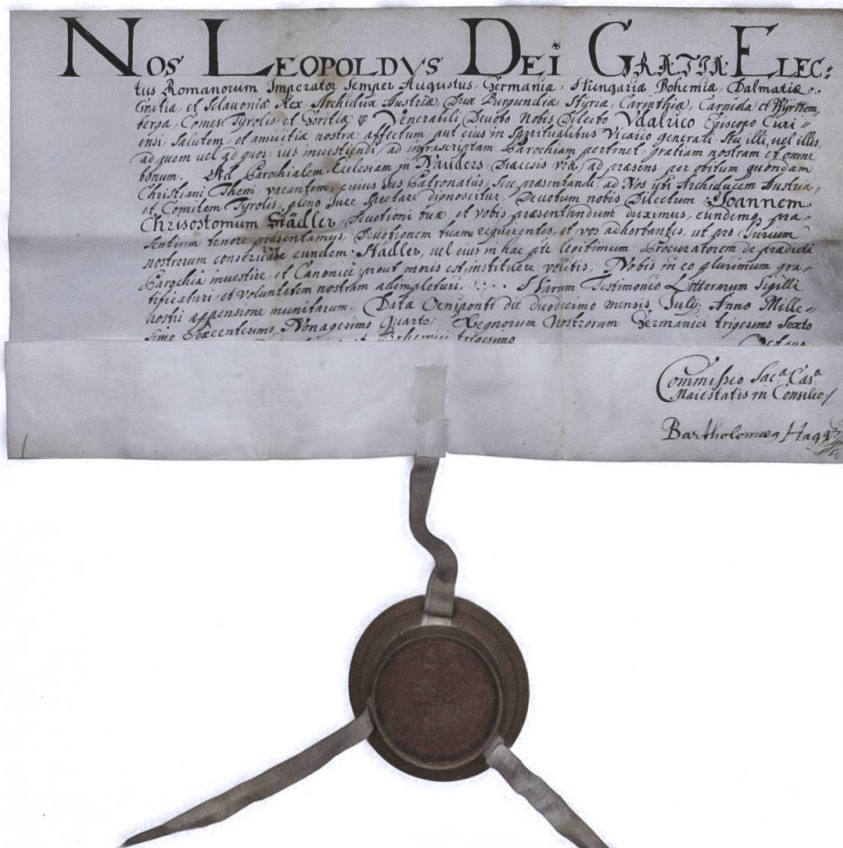 Nos Leopoldus Dei Gratia Elec:
tus Romanorum Imperator Semper Augustus, Germaniæ, Hungariæ Bohemiæ, Dalmatiæ
Croatiæ, et Sclavoniæ Rex Archidux Austriæ, Dux Burgundiæ Styriæ, Carinthiæ, Carniolæ et Wyrttem,,
bergæ, Comes Tyrolis, et Goritiæ & Venerabili Devoto Nobis Dilecto Vdalrico Episcopo Curi,,
ensi, Salutem, et amicitiæ nostræ affectum, aut eius in Spiritualibus Vicario generali, Seu illi, vel illis,
ad quem vel ad quos, ius investiendi, ad infrascriptam Parochiam pertinet, gratiam nostram et omne
bonum. Ad Parochialem Ecclesiam in Nauders Diæcesis viæ, ad præsens per obitum quondam
Christiani Theni vacantem, cuius ius Patronatus, seu præsentandi, ad Nos, vti Archiducem Austriæ,
et Comitem Tyrolis, pleno Iure Spectare dignoscitur, Devotum nobis Dilectum Ioannem
Chrisostomum Städler, Devotioni tuæ, et vobis præsentandum duximus, eundemq præ,,
sentium tenore præsentamus, Devotionem tuam requirentes, et vos adhortantes, ut pro Iurium
nostrorum eundem Städler, vel eius in hac legitimum Procuratorem de prædicta
Parochia investire, et Canonicè, prout moris est, instituere velitis, Nobis in eo plurimum gra,,
tificaturi, et voluntatem nostram adimpleturi. Harum Testimonio Litterarum Sigilli
nostri appensione munitarum. Data Oeniponti die duodecimo mensis Iulij, Anno Mille,,
simo Sexcentesimo, Nonagesimo Quarto, Regnorum Nostrorum Germanici trigesimo Sexto
Bohemici trigesimo Octavo
Commissio Sac.a Cæs.a
Maiestatis in Consilio
Bartholomæq